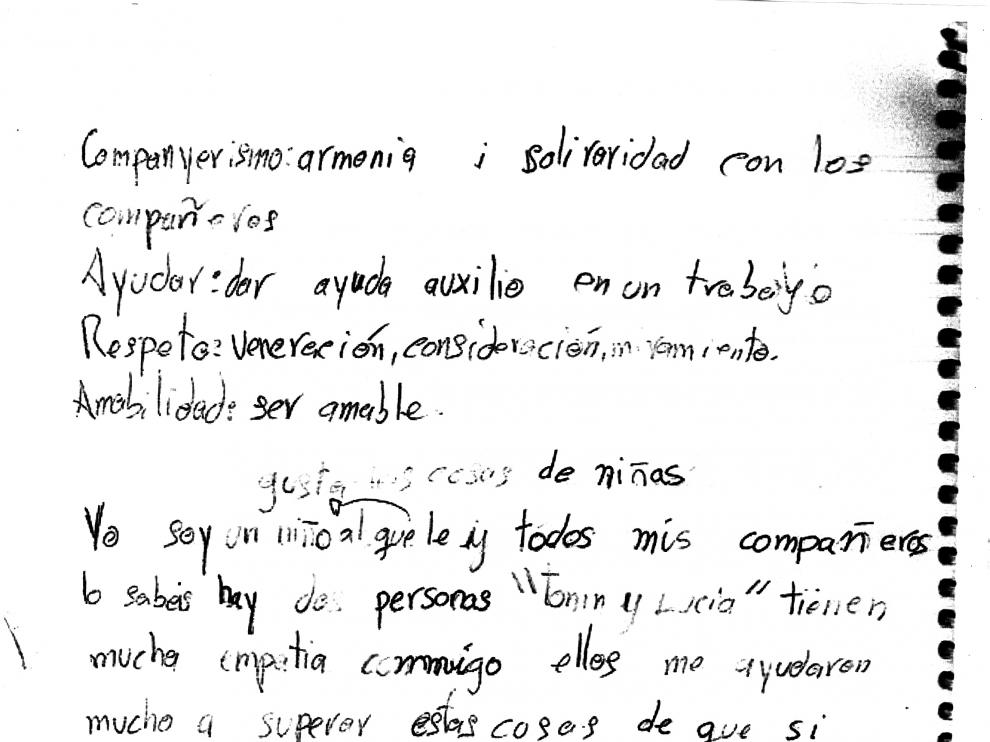 Companyerismo: armonia i soliraridad con los
compañeros
Ayudar: dar ayuda auxilio en un trabayo
Respeto: veneración, consideración, miramiento.
Amabilidad: ser amable.
gusta las cosas de niñas
Yo soy un niño al que le y todos mis compañeros
lo sabeis hay dos personas "Tonin y Lucia" tienen
mucha empatia conmmigo ellos me ayudaron
mucho a superar estas cosas de que si